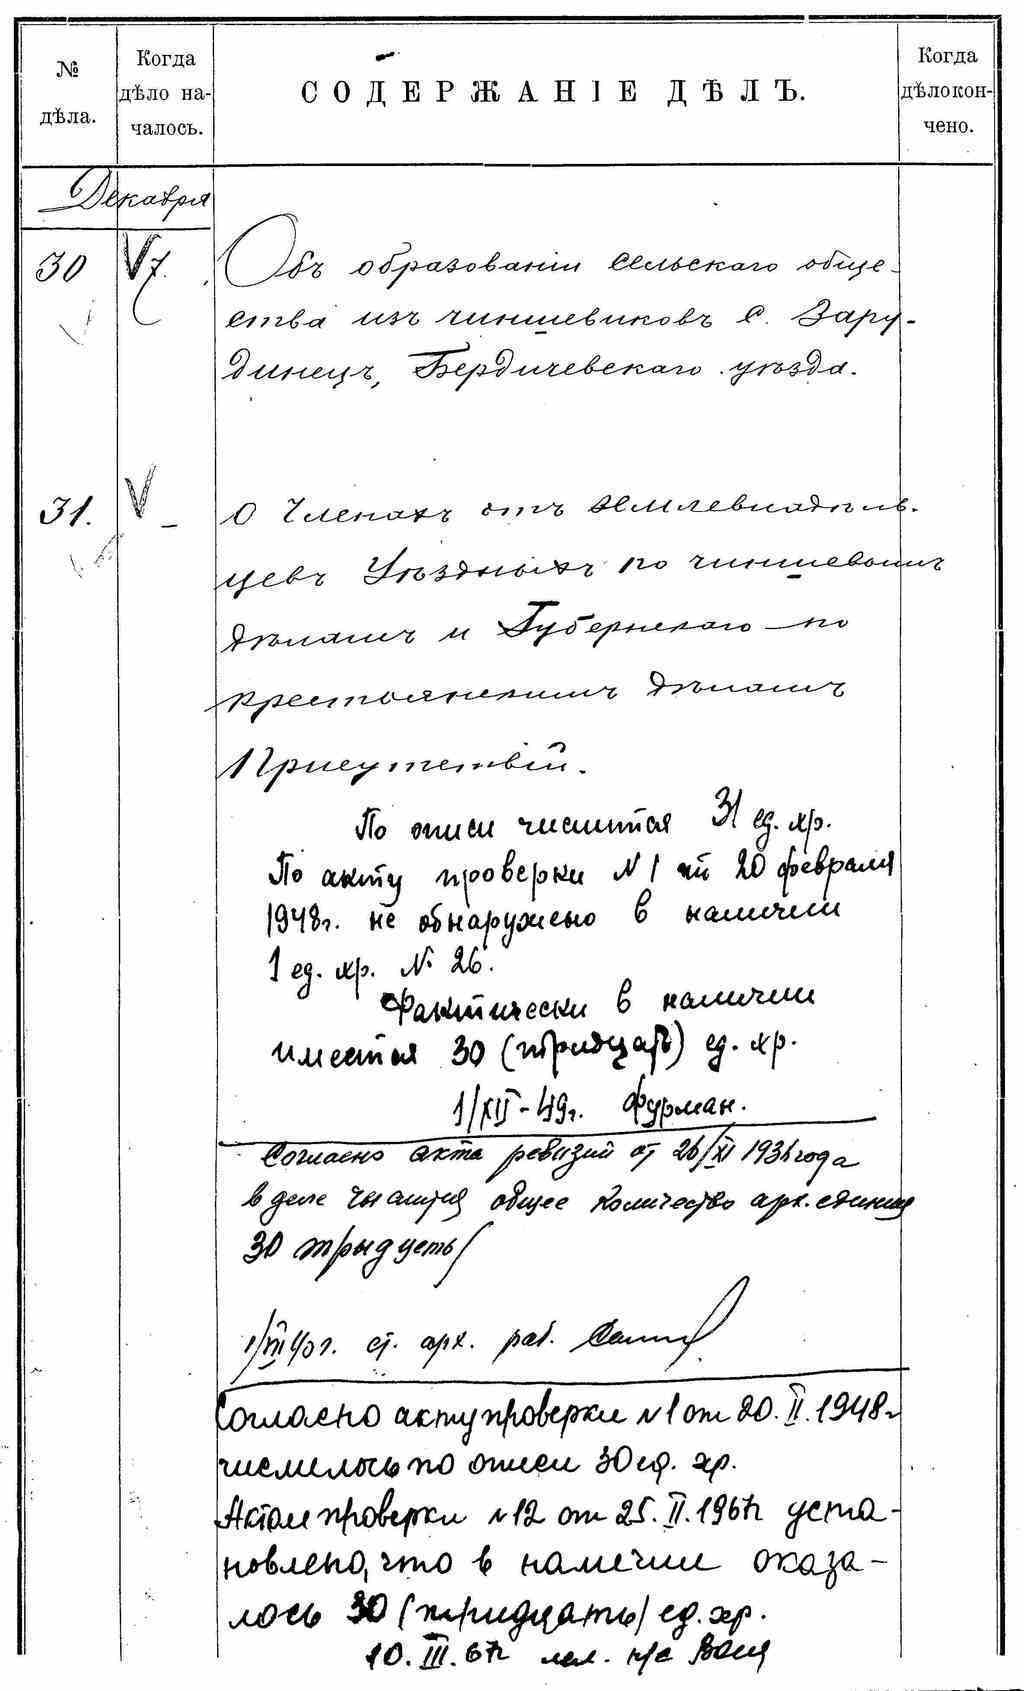 № дѣла.
Когда дѣло на-
чалось.
СОДЕРЖАНІЕ ДѢЛЪ.
Когда дѣло кон-
чено.
Декабря
30 V 7. Объ образованіи сельскаго обще-
ства изъ чиншевиковъ с. Зару-
динецъ, Бердичевскаго уѣзда.
31. V – О Членахъ отъ землевладѣль-
цевъ Уѣздныхъ по чиншевымъ
дѣламъ и Губернскаго по
крестьянскимъ дѣламъ
Присутствій.
По описи числится 31 ед. хр.
По акту проверки №1 от 20 февраля
1948г. не обнаружено в наличии
1 ед. хр. № 26.
Фактически в наличии
имеется 30 (тридцать) ед. хр.
1/XII-49г. Фурман.
Согласно акта ревизий от 26/XI 193 года
в деле числится общее количество арх. единиц
30 трыдцеть/
1/VIII 40г. ст. арх. раб.
Согласно акту проверки №1 от 20.II.1948г
числилось по описи 30 ед. хр.
Актом проверки №12 от 25.II.1967г уста-
новлено, что в наличии оказа-
лось 30 (тридцать) ед. хр.
10.III.67г н/с